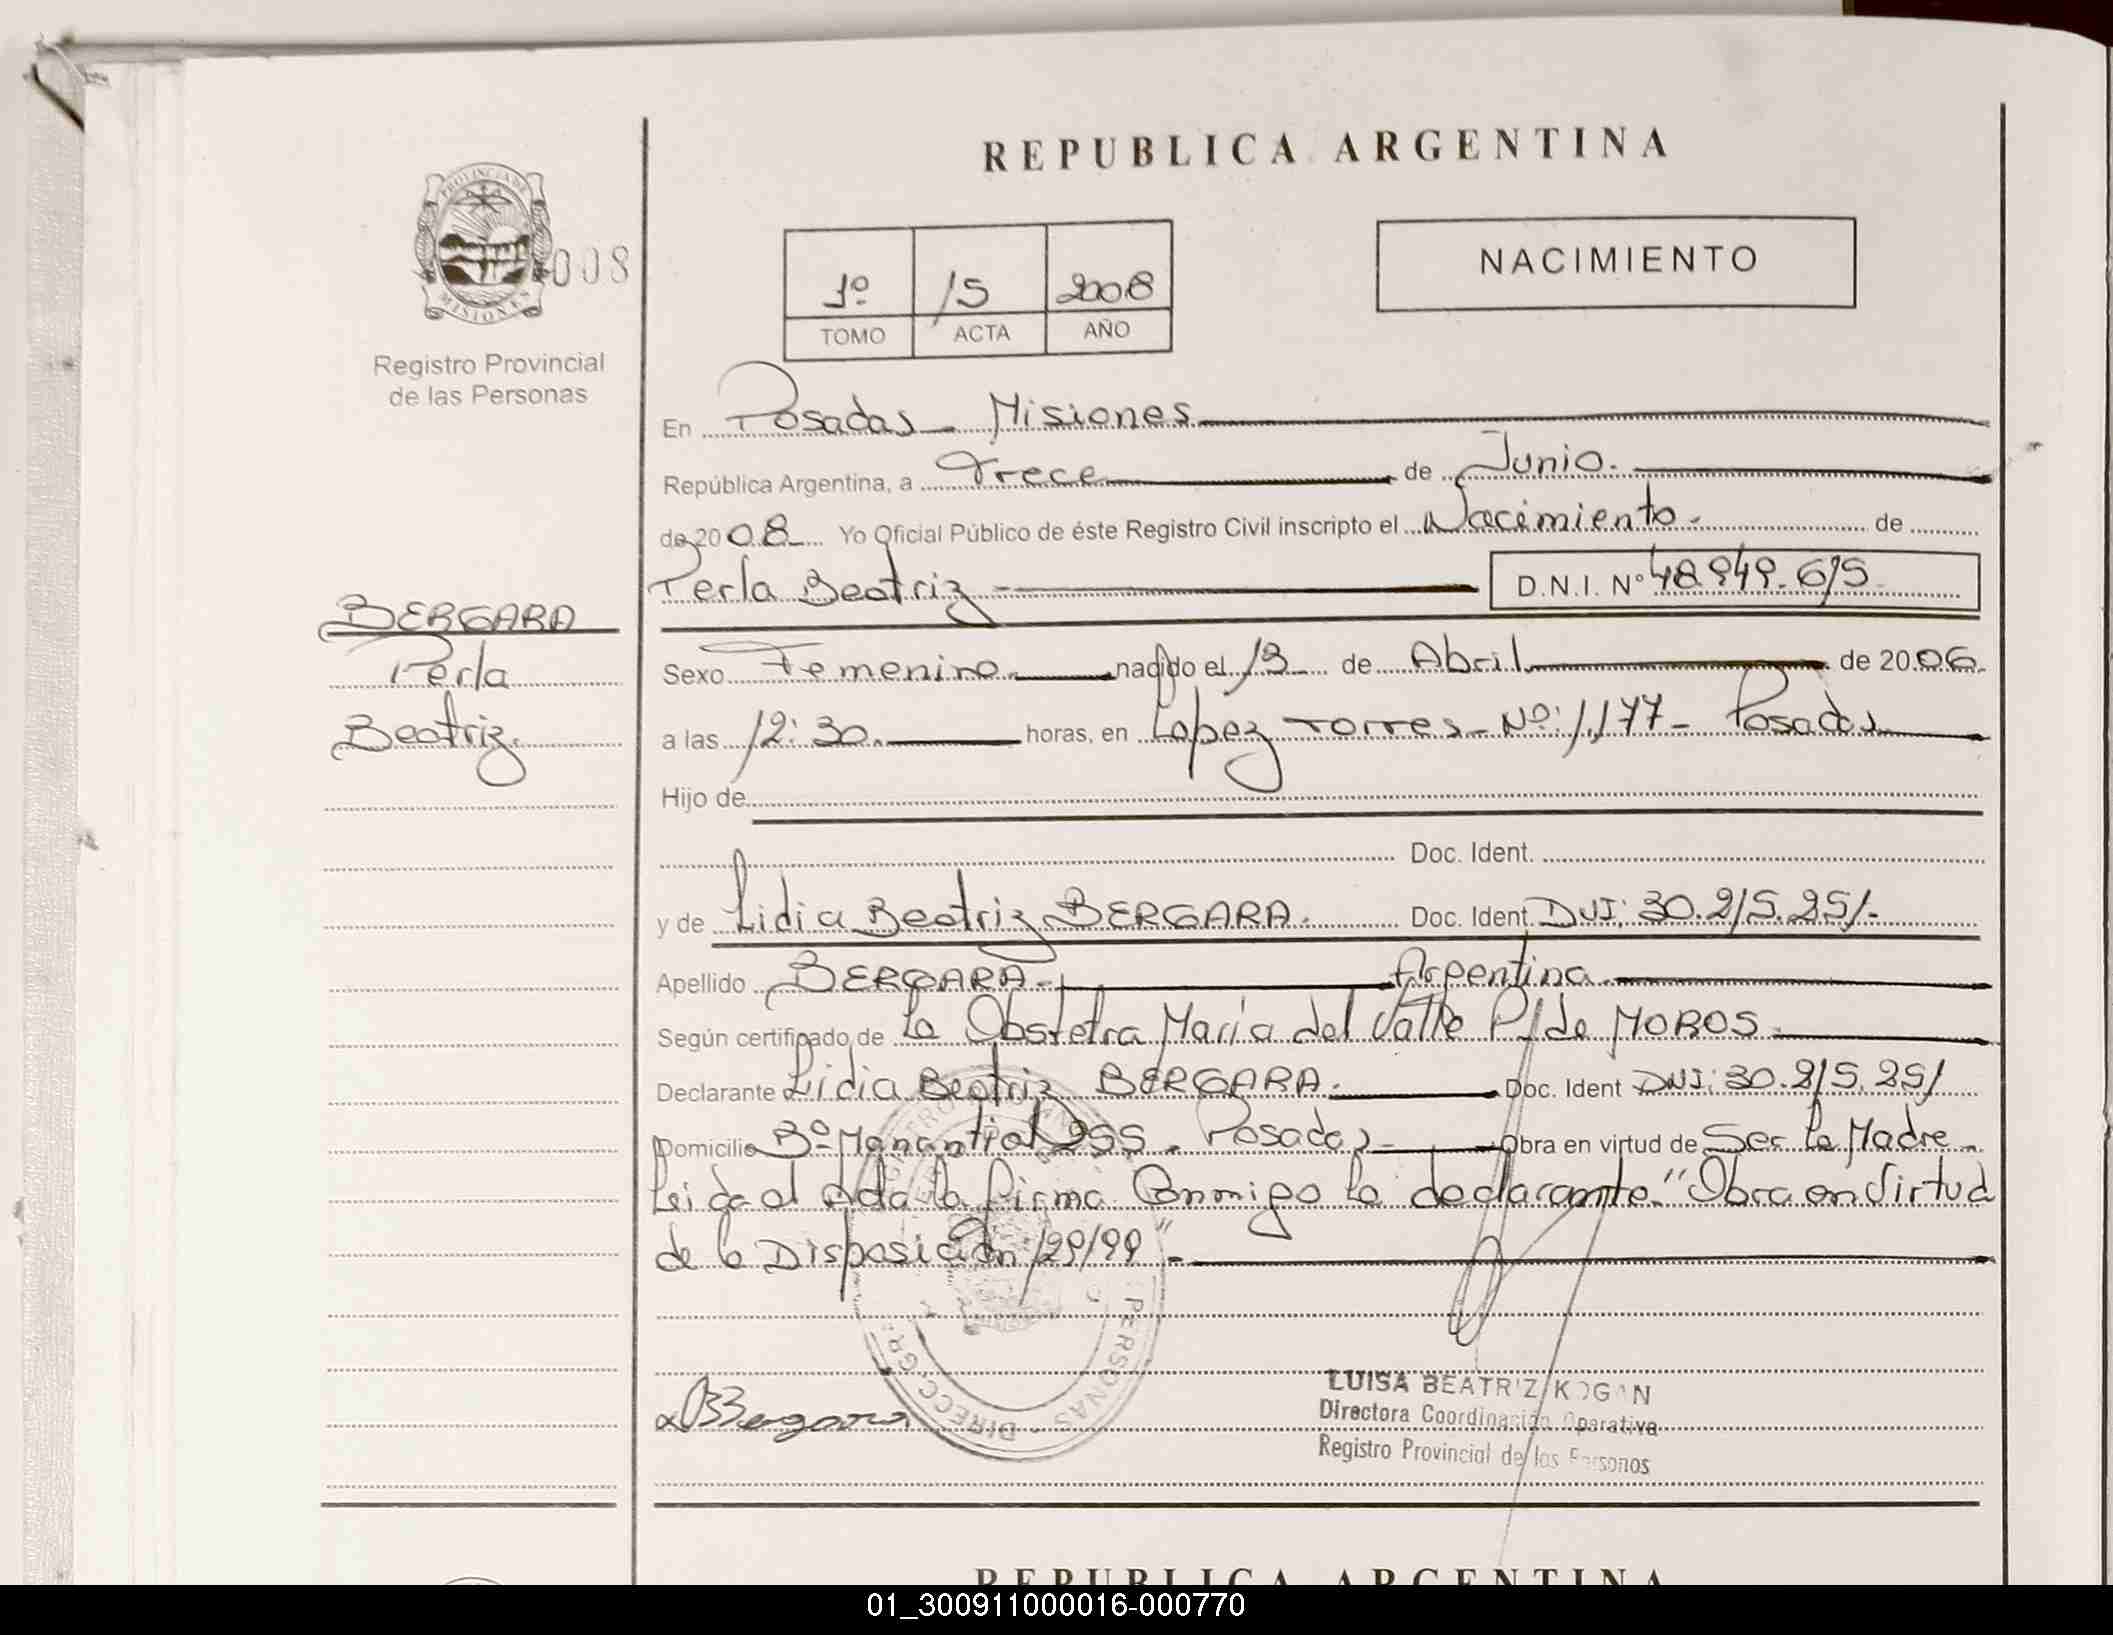 REPUBLICA ARGENTINA
PROVINCIA DE
MISIONES
008
Registro Provincial
de las Personas
1º 15 2008
TOMO ACTA AÑO
NACIMIENTO
En Posadas - Misiones
República Argentina, a Trece de Junio.
de 2008 Yo Oficial Público de éste Registro Civil inscripto el Nacimiento. de
Perla Beatriz D.N.I. Nº 48.949.615
BERGARA
Perla
Beatriz.
Sexo Femenino nacido el 13 de Abril de 2006.
a las 12:30. horas, en Lopez Torres - Nº: 1,177 - Posadas
Hijo de
Doc. Ident.
y de Lidia Beatriz BERGARA. Doc. Ident. DNI: 30.215.251.-
Apellido BERGARA - Argentina.
Según certificado de la Obstetra Maria del Valle P/de MOROS.
Declarante Lidia Beatriz BERGARA. Doc. Ident DNI: 30.215.251
Domicilio Bº Manantial 255. Posadas - Obra en virtud de Ser la Madre -
Leida el Acta la firma Conmigo la declarante. "Obra en Virtud
de la Disposición 129/99" -
Bergara
LUISA BEATRIZ KOGAN
Directora Coordinación Operativa
Registro Provincial de las Personas
REPUBLICA ARGENTINA
01_300911000016-000770